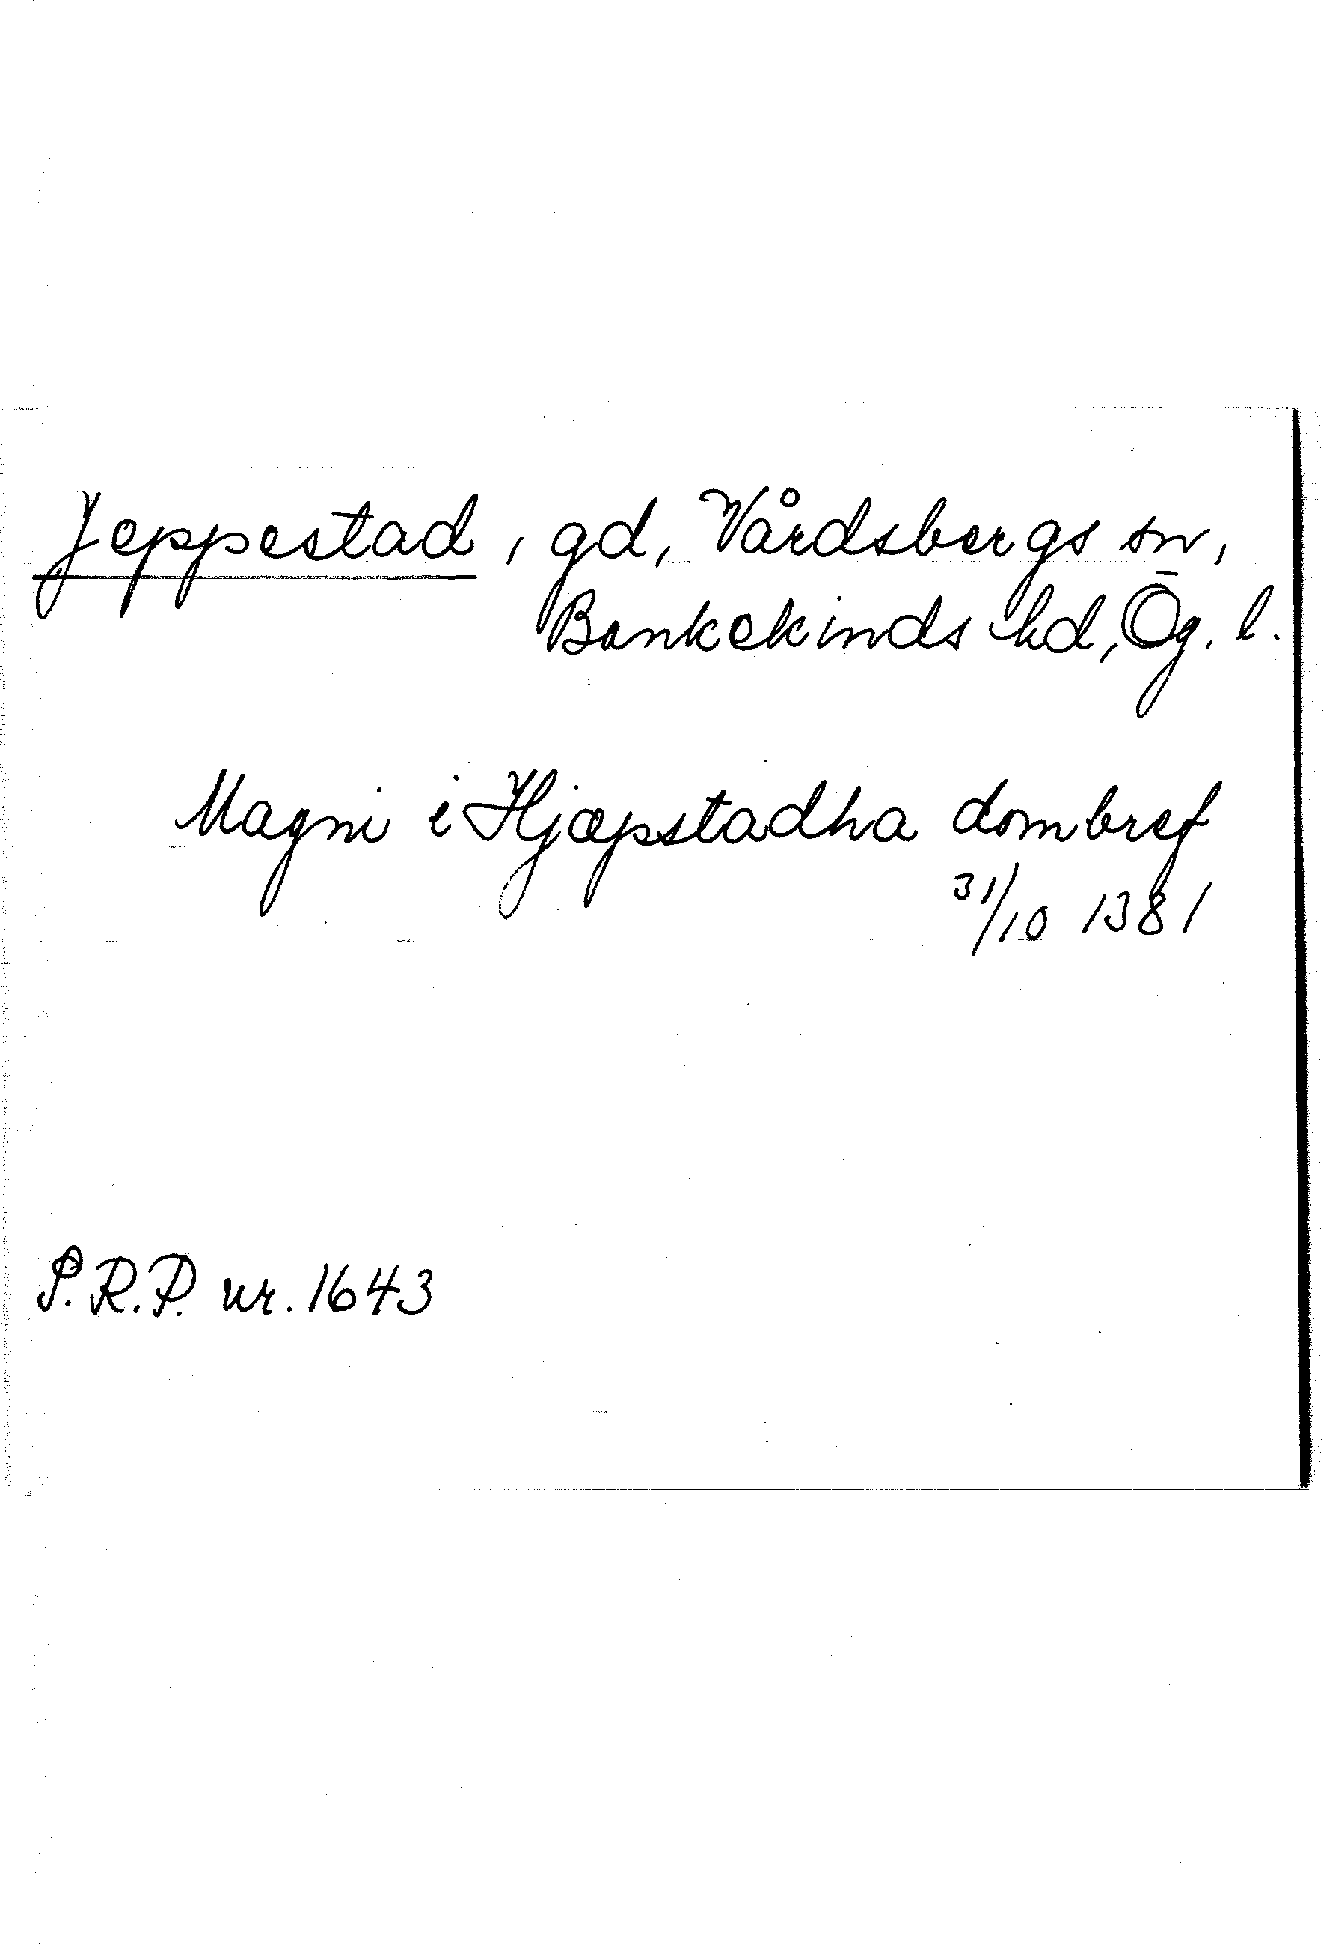 Jeppestad, gd, Vårdsbergs sn,
Bankekinds hd, Ög. l.
Magni i Hjæpstadha dombref
31/10 1381
S.R.P. nr. 1643